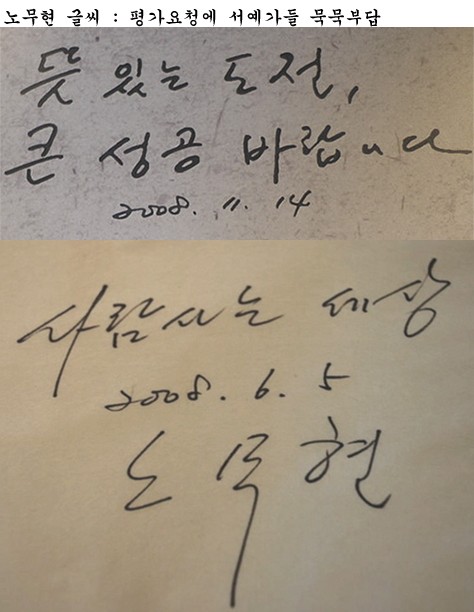 노무현 글씨 : 평가요청에 서예가들 묵묵부답
뜻 있는 도전,
큰 성공 바랍니다
2008. 11. 14
사람사는 세상
2008. 6. 5
노무현